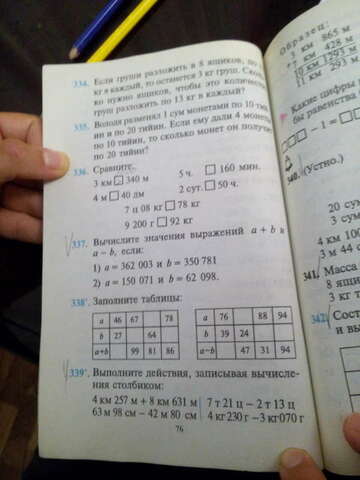 334. Если груши разложить в 8 ящиков, по
кг в каждый, то останется 3 кг груш. Скол
ко нужно ящиков, чтобы это количеств
груш разложить по 13 кг в каждый?
335. Володя разменял 1 сум монетами по 10 тий
ин и по 20 тийин. Если ему дали 4 монет
по 10 тийин, то сколько монет он получи
по 20 тийин?
336. Сравните.
3 км □ 340 м 5 ч. □ 160 мин.
4 м □ 40 дм 2 сут. □ 50 ч.
7 ц 08 кг □ 78 кг
9 200 г □ 92 кг
337. Вычислите значения выражений a + b и
a – b, если:
1) a = 362 003 и b = 350 781
2) a = 150 071 и b = 62 098.
338*. Заполните таблицы:
a 46 67 78
b 27 64
a+b 99 81 86
a 76 88 94
b 39 24
a–b 47 31 94
339*. Выполните действия, записывая вычисле-
ния столбиком:
4 км 257 м + 8 км 631 м 7 т 21 ц – 2 т 13 ц
63 м 98 см – 42 м 80 см 4 кг 230 г – 3 кг 070 г
76
Образец:
3 км 865 м
+7 км 428 м
10 км 1293 м
11 км 293 м
Какие цифры
бы равенства
□□□ – 1 = □□
340. (Устно.)
20 су
3 су
4 км 100
3 м 44 с
341. Масса
8 ящи
3 кг т
342. Сост
и вы